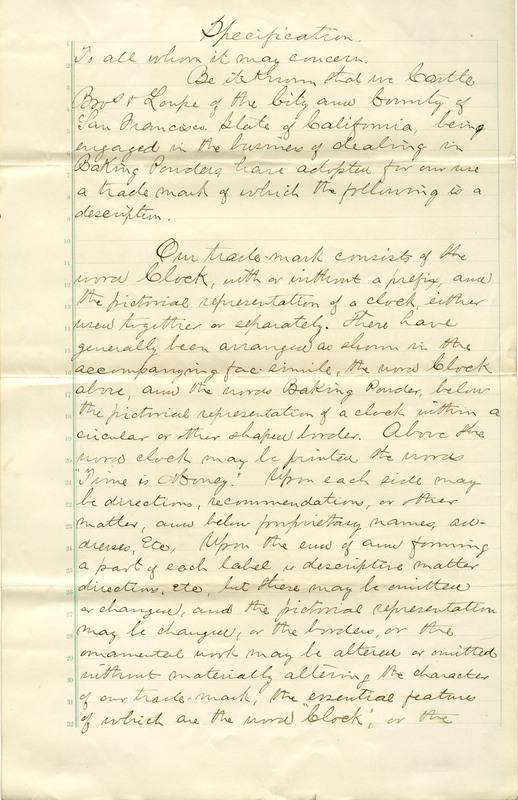 Specification.
To all whom it may concern.
Be it Known that we Castle
Bros & Loupe of the City and County of
San Francisco, State of California, being
engaged in the business of dealing in
Baking Powders, have adopted for our use
a trade mark of which the following is a
description.
Our trade-mark consists of the
word Clock, with or without a prefix, and
the pictorial representation of a clock, either
used together or separately. These have
generally been arranged as shown in the
accompanying fac-simile, the word Clock
above, and the words Baking Powder, below
the pictorial representation of a clock within a
circular or other shaped border. Above the
word clock may be printed the words
"Time is Money." Upon each side may
be directions, recommendations, or other
matter, and below proprietary names, ad-
dresses, Etc, Upon the end of and forming
a part of each label is descriptive matter
directions, etc, but these may be omitted
or changed, and the pictorial representation
may be changed, or the borders, or the
ornamental work may be altered or omitted
without materially altering the character
of our trade-mark, the essential features
of which are the word "Clock", or the